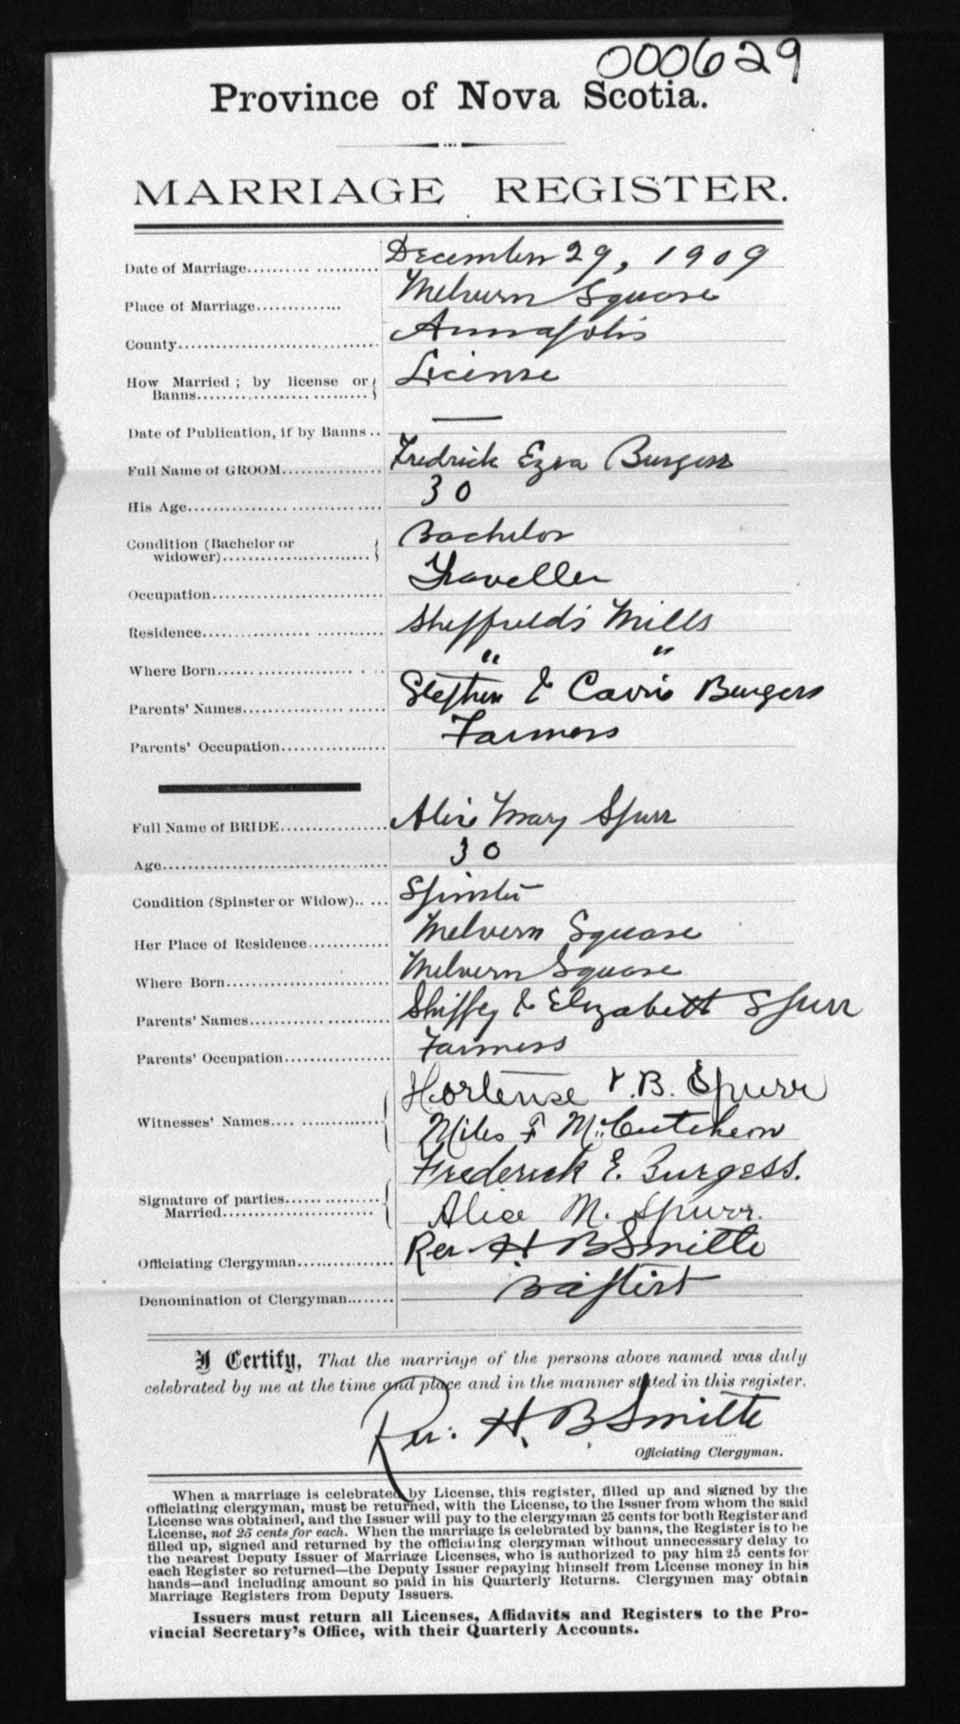 000629
Province of Nova Scotia.
MARRIAGE REGISTER.
Date of Marriage.................... December 29, 1909
Place of Marriage............. Melvern Square
County.............................. Annapolis
How Married; by license or Banns.................... License
Date of Publication, if by Banns .. ——
Full Name of GROOM............... Fredrick Ezra Burgess
His Age............................. 30
Condition (Bachelor or widower)....................... Bachelor
Occupation......................... Traveller
Residence.......................... Sheffield's Mills
Where Born........................ " "
Parents' Names..................... Stephen & Carrie Burgess
Parents' Occupation............... Farmers
Full Name of BRIDE................ Alice Mary Spurr
Age................................. 30
Condition (Spinster or Widow)..... Spinster
Her Place of Residence............ Melvern Square
Where Born....................... Melvern Square
Parents' Names.................... & Elizabeth Spurr
Parents' Occupation............... Farmers
Witnesses' Names.................. Hortense B. Spurr
Miles F McCutcheon
Signature of parties Married....................... Frederick E. Burgess.
Alice M. Spurr.
Officiating Clergyman.............. Rev. H. B Smith
Denomination of Clergyman........ Baptist
I Certify, That the marriage of the persons above named was duly
celebrated by me at the time and place and in the manner stated in this register.
Rev. H. B Smith
Officiating Clergyman.
When a marriage is celebrated by License, this register, filled up and signed by the
officiating clergyman, must be returned, with the License, to the Issuer from whom the said
License was obtained, and the Issuer will pay to the clergyman 25 cents for both Register and
License, not 25 cents for each. When the marriage is celebrated by banns, the Register is to be
filled up, signed and returned by the officiating clergyman without unnecessary delay to
the nearest Deputy Issuer of Marriage Licenses, who is authorized to pay him 25 cents for
each Register so returned—the Deputy Issuer repaying himself from License money in his
hands—and including amount so paid in his Quarterly Returns. Clergymen may obtain
Marriage Registers from Deputy Issuers.
Issuers must return all Licenses, Affidavits and Registers to the Pro-
vincial Secretary's Office, with their Quarterly Accounts.